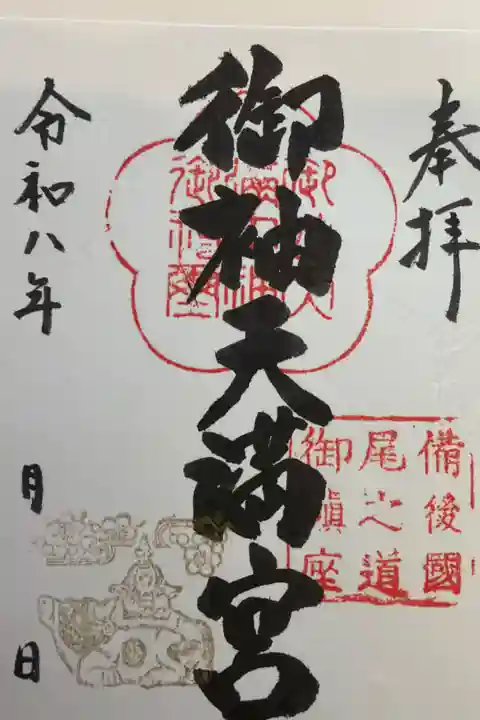 奉拝
備後國
尾之道
御鎮座
御袖天満宮
令和八年 月 日